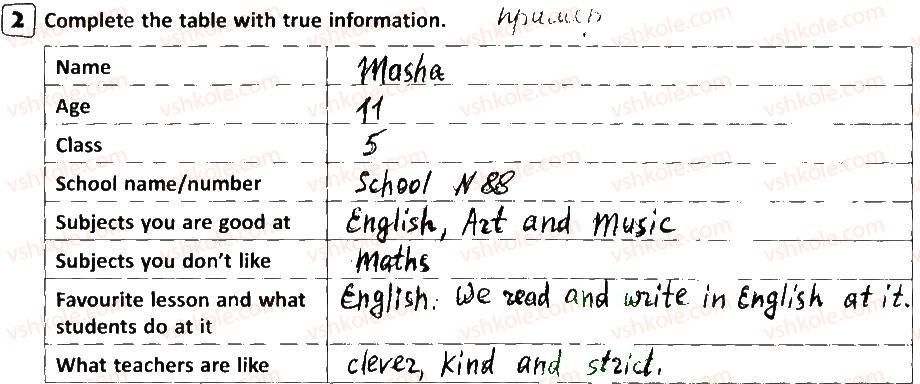 2 Complete the table with true information. пример
Name Masha
Age 11
Class 5
School name/number School N 88
Subjects you are good at English, Art and Music
Subjects you don't like Maths
Favourite lesson and what English. We read and write in English at it.
students do at it
What teachers are like clever, kind and strict.